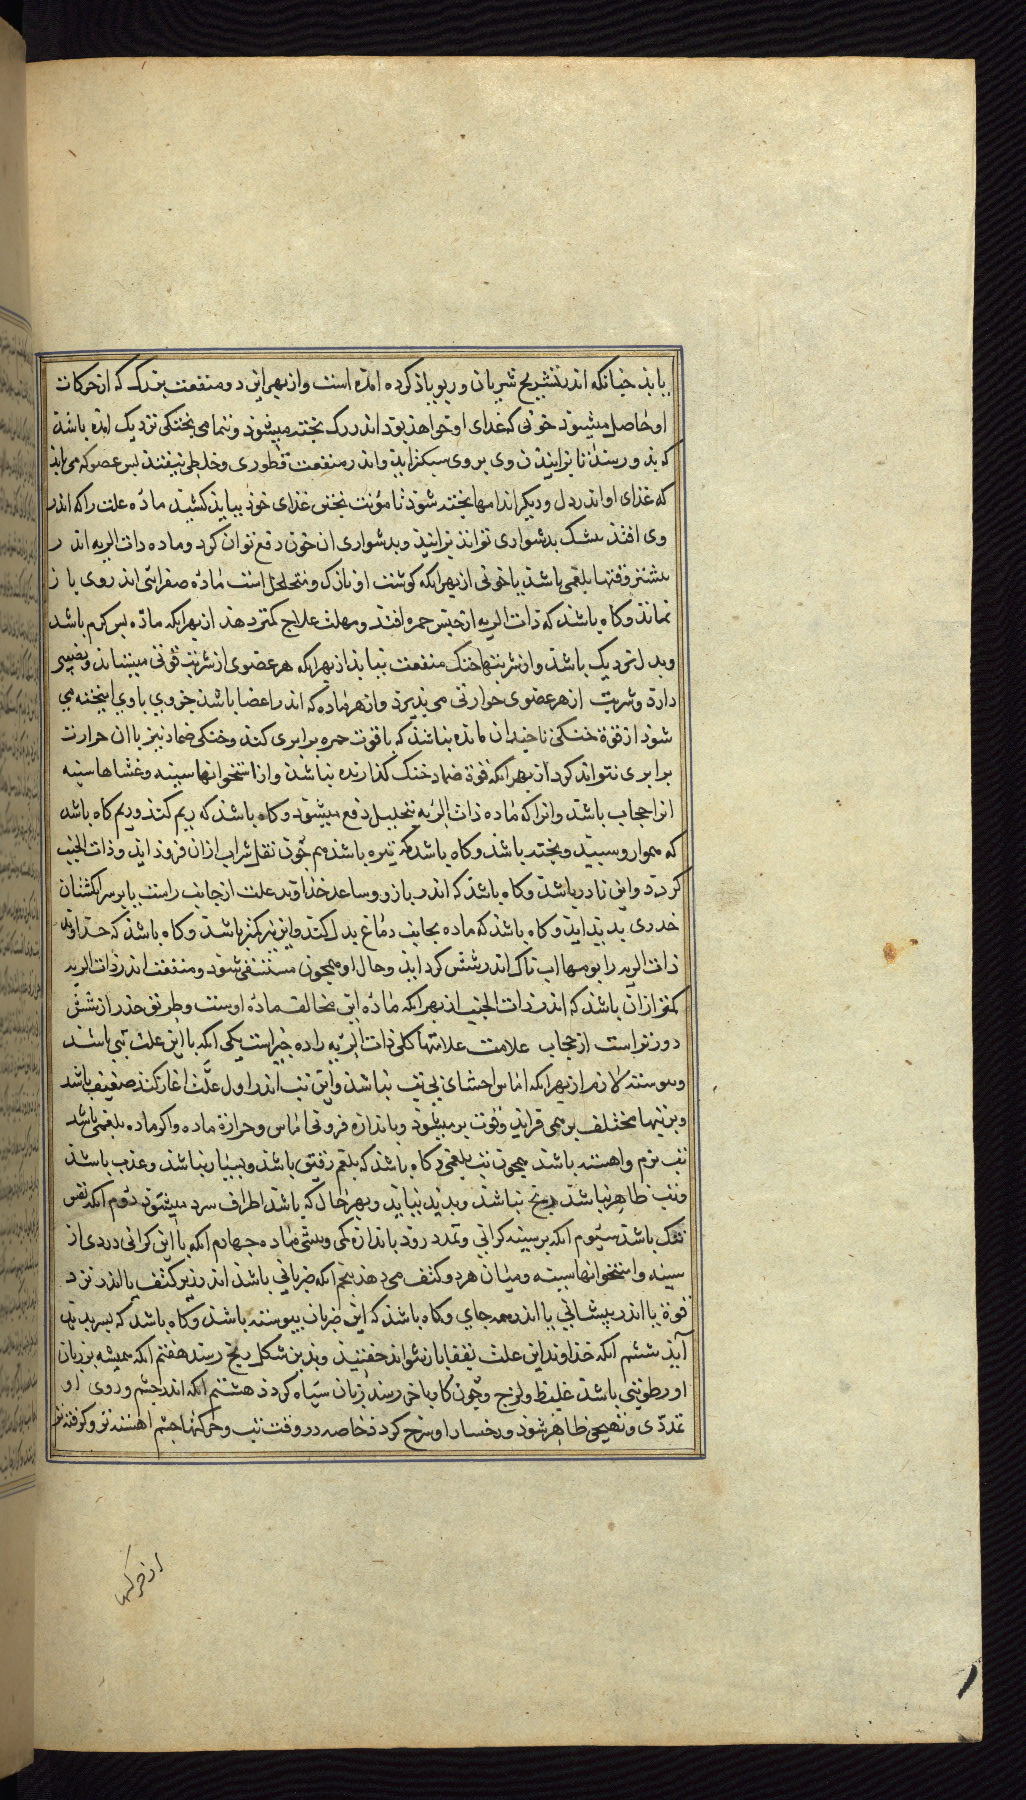 یابذ چنانکه اندر تشریح شریان وریو یاذ کرده امذه است واز بهر این دو منفعت بزرک که از حرکات
او حاصل میشوذ خونی که غذای او خواهذ بوذ اندر رک پخته میشوذ وبتمامی پختکی نزدیک امذه باشذ
که بذو رسذ تا بر ایذن وی بروی سبکتر ایذ واندر منفعت قطوری وخلطی نیفتذ پس عضو که می ایذ
که غذای او اندر دل ودیکر اندامها پخته شوذ تا مؤنت پختن غذای خوذ نبایذ کشیذ ماده علت را که اندر
وی افتذ بیشک بدشواری تواند پزانیذ وبدشواری ان خون دفع توان کرد وماده ذات الریه اندر
بیشتر وقتها بلغمی باشذ یا خونی از بهر انکه کوشت او نازک ومتخلخل است ماده صفرائی اندر وی باز
نمانذ وکاه باشذ که ذات الریه از جنس حمره افتذ ومهلت علاج کمتر دهذ از بهر انکه ماده بس کرم باشذ
وبدل نزدیک باشذ واز شربتها خنک منفعت نیابذ از بهر انکه هر عضوی از شربت قوتی میستاند ونصیبی
دارذ وشربت از هر عضوی حرارتی می پذیرذ واز هر ماده که اندر اعضا باشذ جزوی با وی امیخته می
شوذ از قوة خنکی تا چندان نمانده نباشذ که با قوت حمره برابری کنذ وخنکی ضماد نیز با ان حرارت
برابری نتواند کرد از بهر انکه قوة ضماد خنک کذارنده نباشذ واز استخوانها سینه وغشاها سینه
انرا حجاب باشذ وانرا که ماده ذات الریه بتحلیل دفع میشوذ وکاه باشذ که ریم کنذ وریم کاه باشذ
که هموار وسپیذ وپخته باشذ وکاه باشذ که تیره باشذ هم چون ثفل شراب ازان فروذ ایذ وذات الجنب
کردذ واین نادر باشذ وکاه باشذ که اندر بازو وساعد خذاوند علت از جانب راست یا بر سر انکشتان
خدری پدید ایذ وکاه باشذ که ماده بجانب دماغ بدل کنذ واین نیز کمتر باشذ وکاه باشذ که خذاوند
ذات الریه را بومها اب ناک اندر شش کرد ایذ وحال او همچون مستسقی شوذ ومنفعت اندر ذات الریه
کمتر ازان باشذ که اندر ذات الجنب از بهر انکه ماده این مخالف ماده اوست وطریق حذر از شش
دورتر است از حجاب علامت علامتها کلی ذات الریه را ده چیز است یکی انکه با این علت تبی باشذ
وپیوسته لازم از بهر انکه اماس احشای بی تب نباشذ واین تب اندر اول علت اغاز کند ضعیف باشذ
وبزینها مختلف برهمی فزایذ وقوت بر میشوذ وباندازه فزونی اماس وحرارة ماده واکر ماده بلغمی باشذ
تب نرم واهسته باشذ همچون تب بلغمی وکاه باشذ که بلغم رقیق باشذ وبسیار نباشذ وعذب باشذ
وتب ظاهر نباشذ ورنج نباشذ وبدید نیایذ وبهر حال که باشذ اطراف سرد میشوذ دوم انکه نفس
تنک باشذ سیوم انکه بر سینه کرانی وتمدد روذ باندازه کمی وبیشی ماده چهارم انکه با این کرانی دردی از
سینه واستخوانها سینه ومیان هر دو کتف می دهذ پنجم انکه ضربانی باشذ اندر زیر کتف یا اندر نزد
قوة یا اندر پیشانی یا اندر همه جای وکاه باشذ که این ضربان پیوسته باشذ وکاه باشذ که بسرید تب
آیذ ششم انکه خذاوند این علت بقفا باز نتواند خفتیذ وبذین شکل رنج رسذ هفتم انکه همیشه بر زبان
او رطوبتی باشذ غلیظ ولزج وچون کار باخر رسذ زبان سیاه کردذ هشتم انکه اندر چشم وروی او
تمددی وتهیجی ظاهر شوذ ورخسار او سرخ کردذ خاصه در وقت تب وحرکتها چشم اهسته تر وکرفته تر
از حرکتها